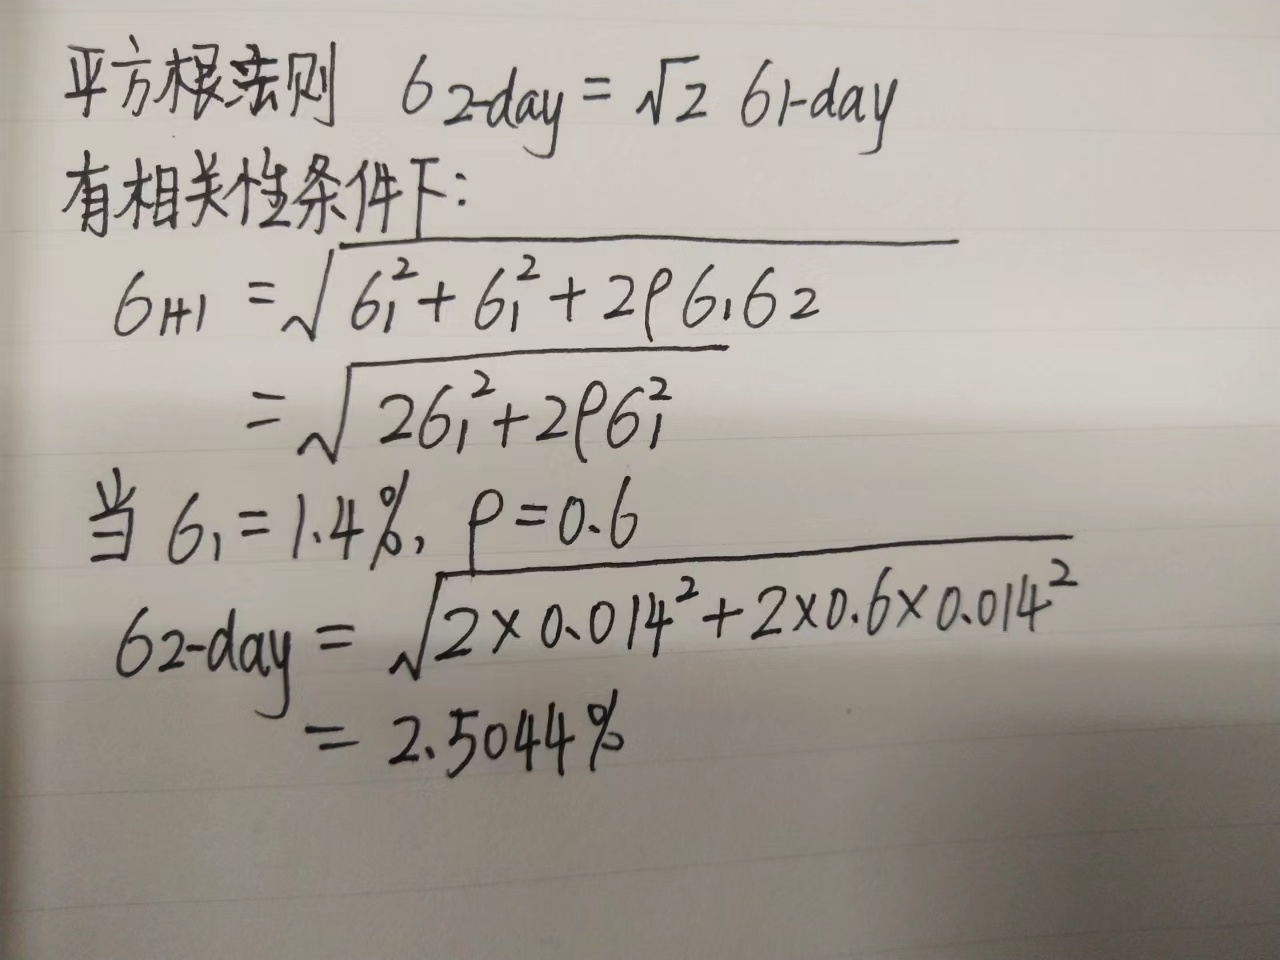 平方根法则 σ2-day = √2 σ1-day
有相关性条件下:
σ1+1 = √(σ₁² + σ₁² + 2ρσ₁σ2)
= √(2σ₁² + 2ρσ₁²)
当 σ₁ = 1.4%, ρ = 0.6
σ2-day = √(2×0.014² + 2×0.6×0.014²)
= 2.5044%